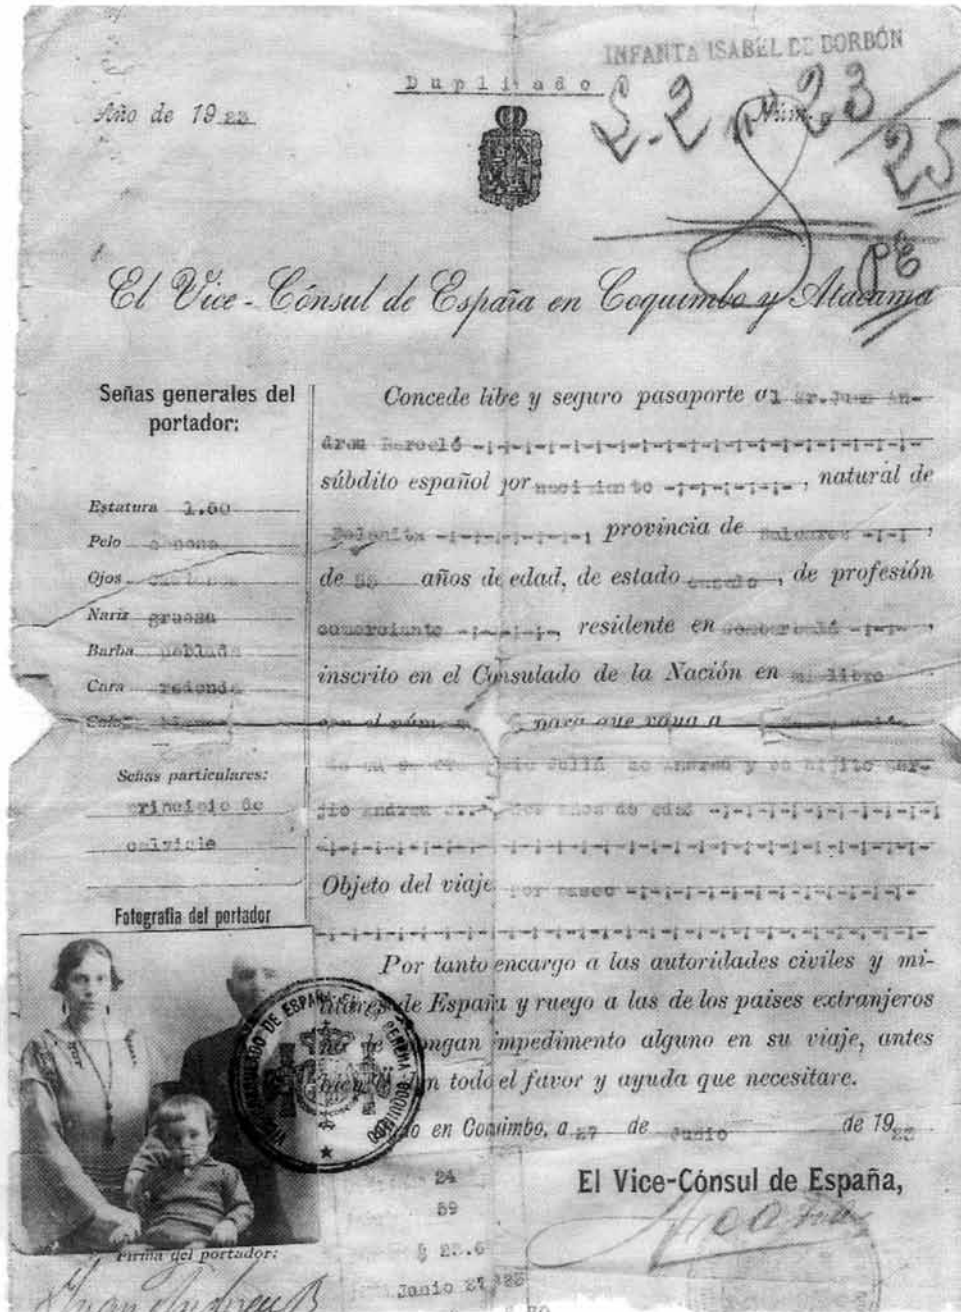 INFANTA ISABEL DE BORBÓN
Duplicado
Año de 1923
Núm.
S-2 23/25
El Vice-Cónsul de España en Coquimbo y Atacama
Señas generales del
portador:
Estatura 1.60
Pelo
Ojos
Nariz gruesa
Barba poblada
Cara redonda
Color
Señas particulares:
principio de
calvicie
Fotografía del portador
Concede libre y seguro pasaporte al Sr. Juan An-
dreu Barceló -;-;-;-;-;-;-;-;-;-;-;-;-;-;-;-;-;-
súbdito español por nacimiento -;-;-;-;-;-, natural de
Felanitx -;-;-;-;-;-; provincia de Baleares -;-;
de años de edad, de estado casado, de profesión
comerciante -;-;-;-;-, residente en Combarbalá -;-;-,
inscrito en el Consulado de la Nación en mi libro
con el núm. para que vaya a
Juliá de Andreu y su hijito Ser-
gio Andreu J., dos años de edad -;-;-;-;-;-;-;-;-;
Objeto del viaje por paseo -;-;-;-;-;-;-;-;-;-;-;-;-
Por tanto encargo a las autoridades civiles y mi-
litares de España y ruego a las de los paises extranjeros
no le pongan impedimento alguno en su viaje, antes
bien le den todo el favor y ayuda que necesitare.
Dado en Coquimbo, a 27 de Junio de 1923
VICE-CONSULADO DE ESPAÑA COQUIMBO
El Vice-Cónsul de España,
24
59
$ 23.6
Junio 27 923
Firma del portador:
Juan Andreu B